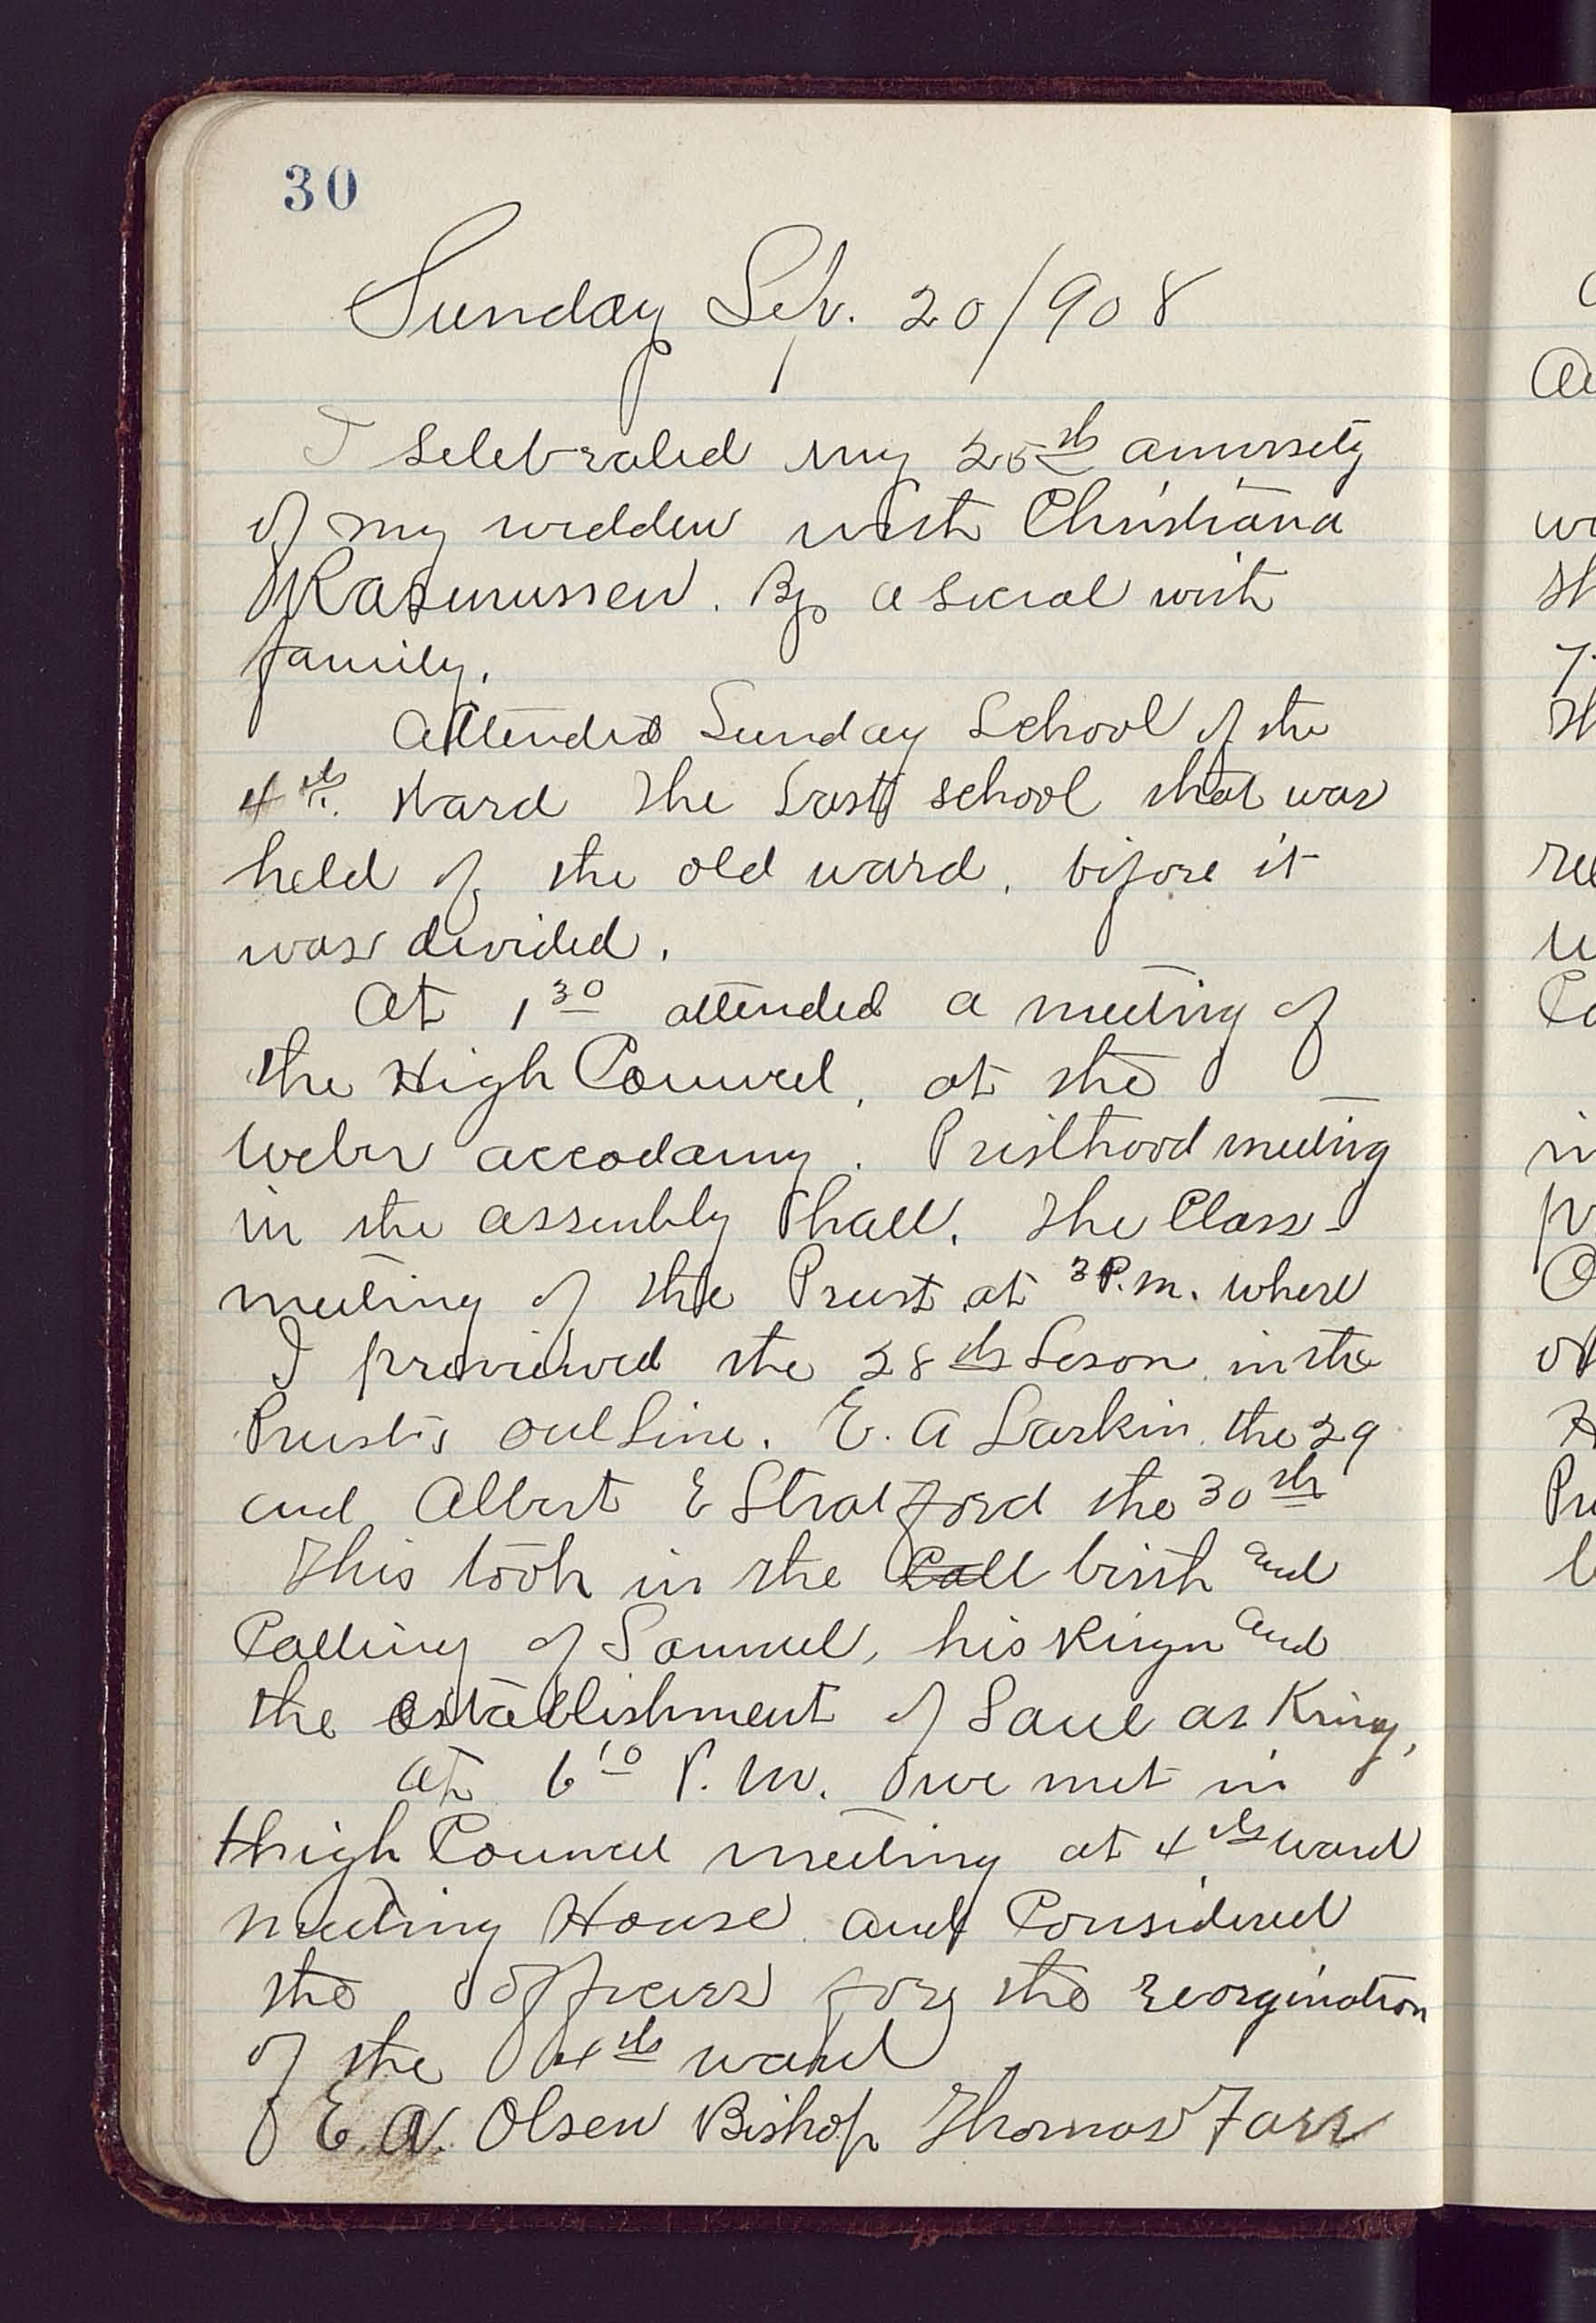 30
Sunday Sep. 20/908
I selebrated my 25th anversety
of my wedden with Christiana
Rasmussen. By a social with
family.
Attended Sunday School of the
4th. Ward The Last school that was
held of the old ward, before it
was devided.
At 1 30 attended a meeting of
the High Councel, at the
Weber accodamy. Pristhood meeting
in the assembly hall. The Class-
meeting of the Priest at 3 P.M. where
I previewed the 28th Leson in the
Priests out line. E. A Larkin the 29
and Albert E Stratford the 30th
This took in the Call birth and
Calling of Samuel, his Reign and
the establishment of Saul as King,
At 6 10 P.M. we met in
High Councel meeting at 4th ward
meeting House and Considered
the officers for the reorgination
of the 4th ward
E. A. Olsen Bishop Thomas Farr